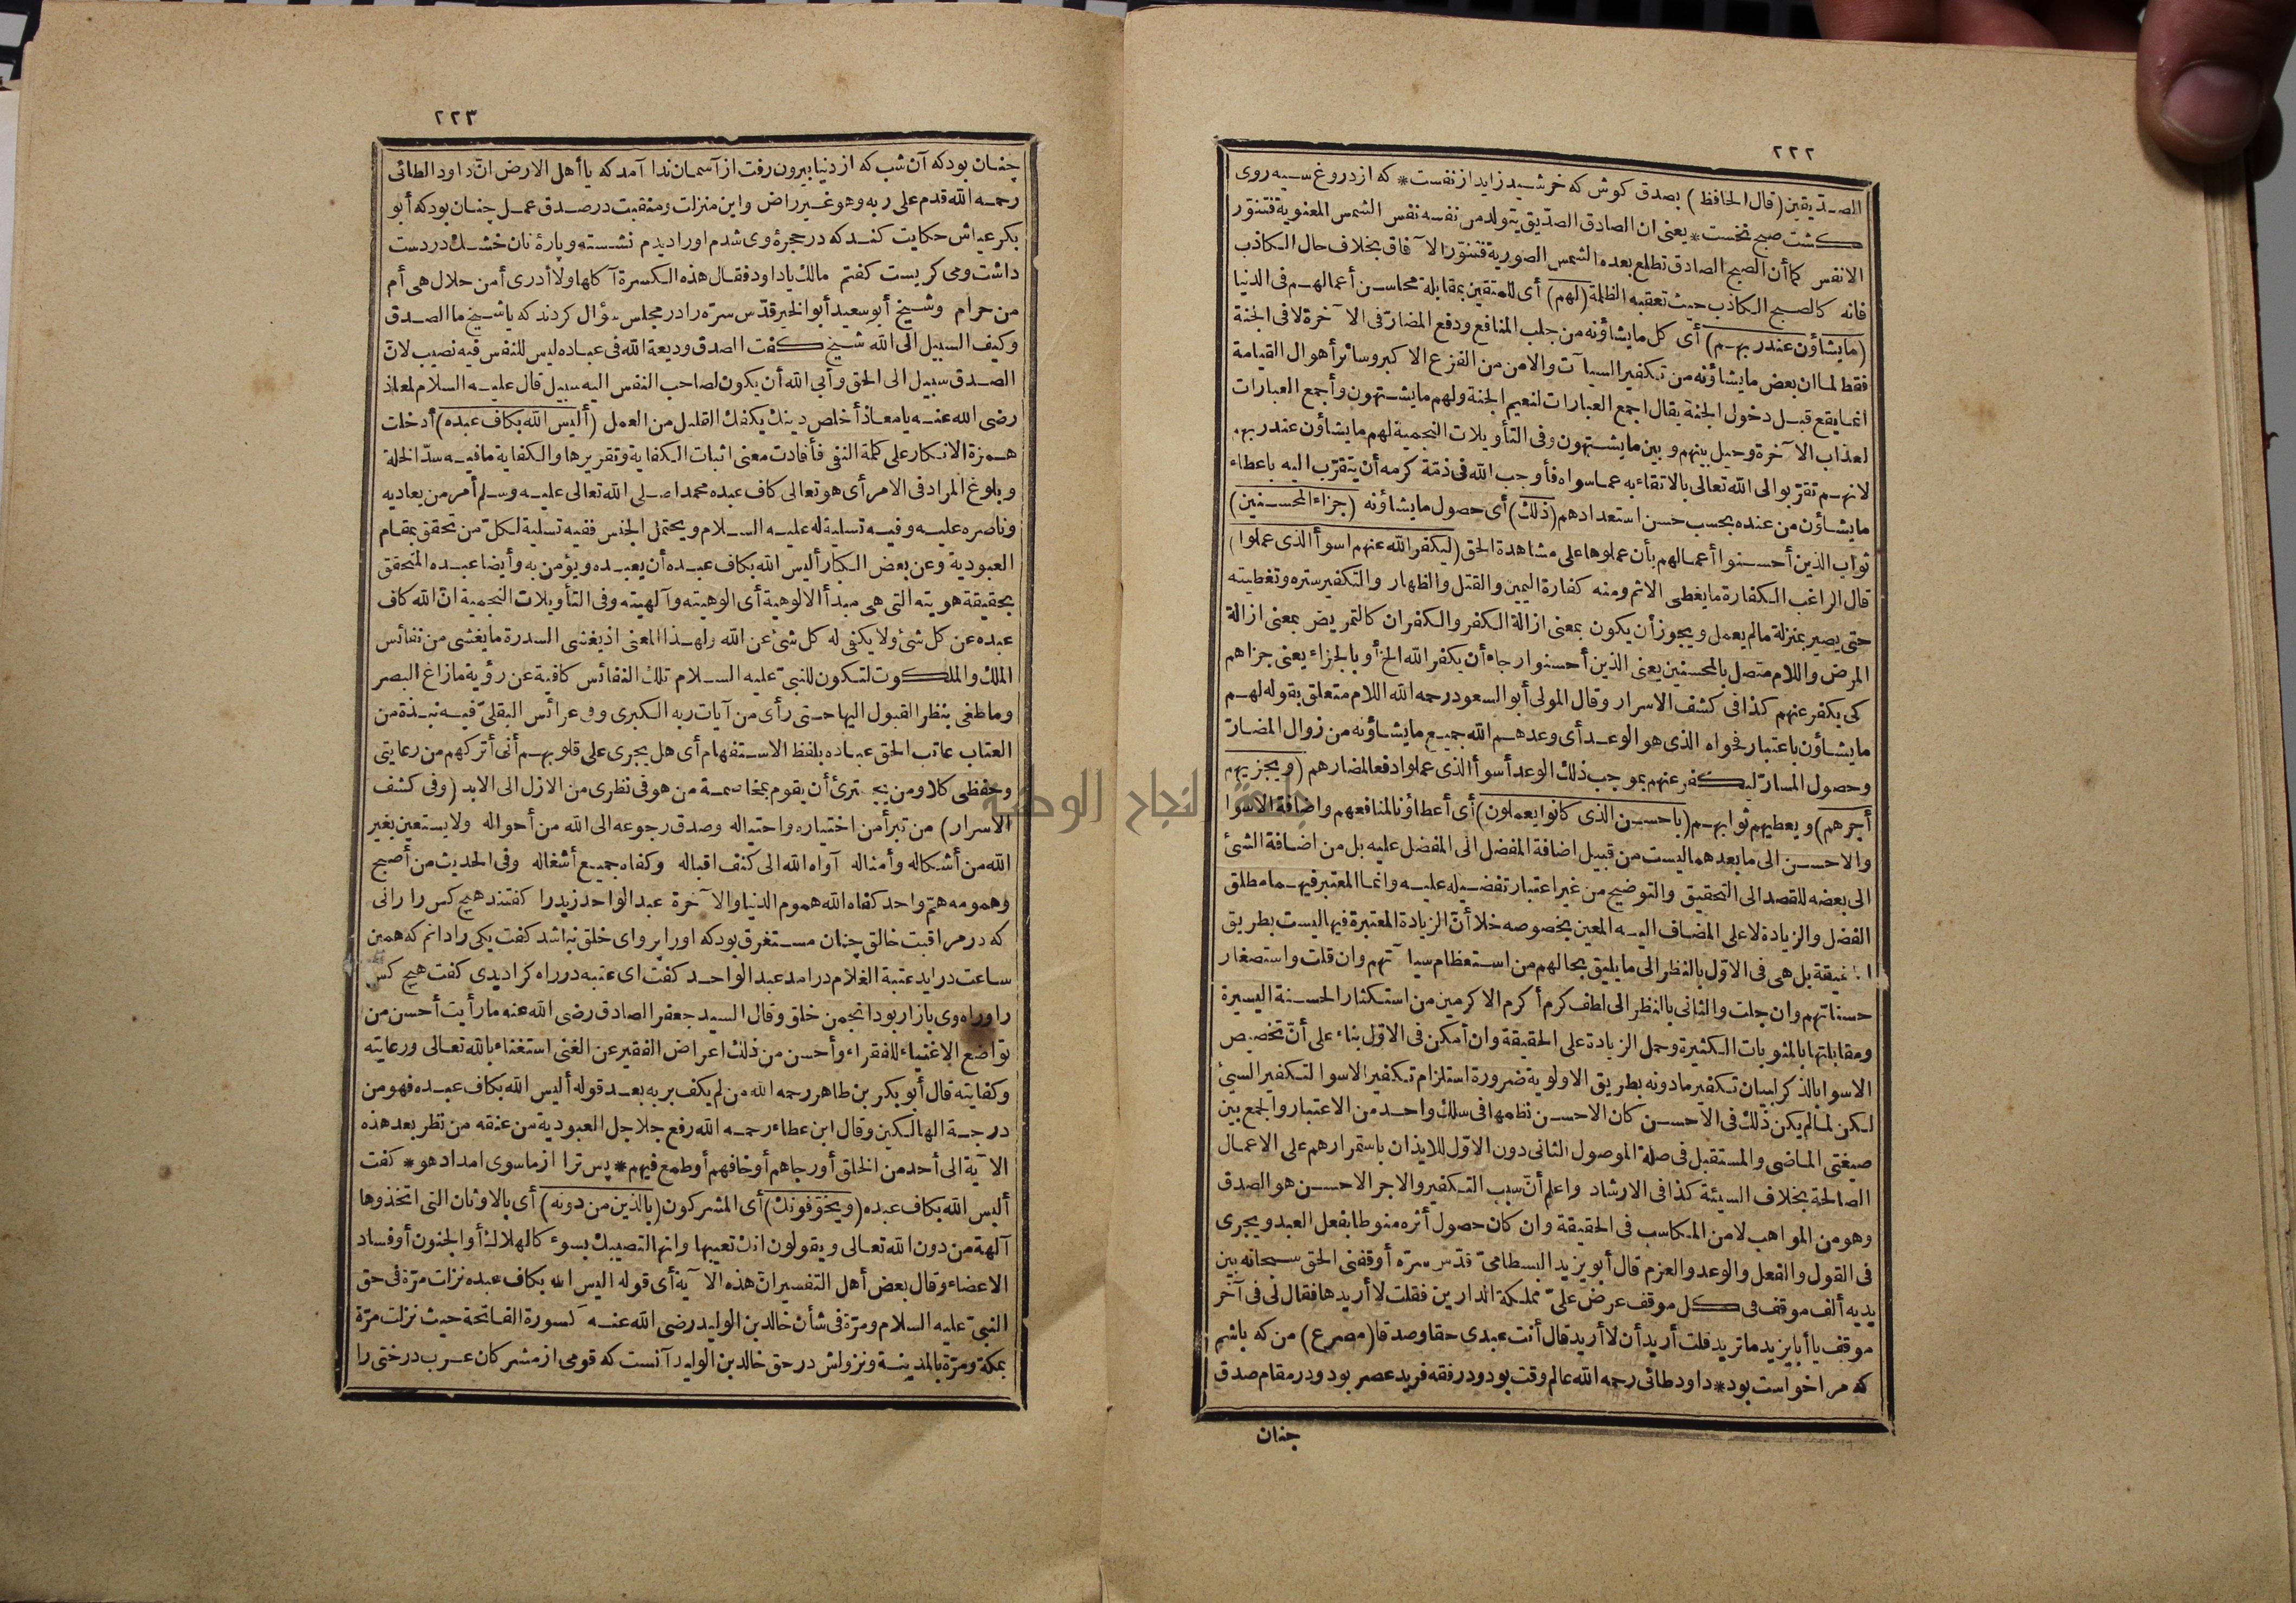 ٢٢٢
الصديقين (قال الحافظ) بصدق كوش كه خرشيد زايد از نفست * كه از دروغ سيه روى
كشت صبح نخست * يعنى ان الصادق الصديق يتولد من نفسه نفس الشمس المعنوية فتنور
الانفس كما أن الصبح الصادق تطلع بعده الشمس الصورية فتنور الآفاق بخلاف حال الكاذب
فانه كالصبح الكاذب حيث تعقبه الظلمة (لهم) أى للمتقين بمقابلة محاسن أعمالهم فى الدنيا
(ما يشاؤن عند ربهم) أى كل ما يشاؤنه من جلب المنافع ودفع المضار فى الآخرة لا فى الجنة
فقط لما ان بعض ما يشاؤنه من تكفير السيآت والامن من الفزع الاكبر وسائر أهوال القيامة
انما يقع قبل دخول الجنة يقال اجمع العبارات لنعيم الجنة ولهم ما يشتهون وأجمع العبارات
لعذاب الآخرة وحيل بينهم وبين ما يشتهون وفى التأويلات النجمية لهم ما يشاؤن عند ربهم
لانهم تقربوا الى الله تعالى بالاتقاء به عما سواه فأوجب الله فى ذمة كرمه أن يتقرب اليه باعطاء
ما يشاؤن من عنده بحسب حسن استعدادهم (ذلك) أى حصول ما يشاؤنه (جزاء المحسنين)
ثواب الذين أحسنوا أعمالهم بأن عملوها على مشاهدة الحق (ليكفر الله عنهم اسوأ الذى عملوا)
قال الراغب الكفارة ما يغطى الاثم ومنه كفارة اليمين والقتل والظهار والتكفير ستره وتغطيته
حتى يصير بمنزلة ما لم يعمل ويجوز أن يكون بمعنى ازالة الكفر والكفران كالتمريض بمعنى ازالة
المرض واللام متصل بالمحسنين يعنى الذين أحسنوا رجاء أن يكفر الله الخ أو بالجزاء يعنى جزاهم
كى يكفر عنهم كذا فى كشف الاسرار وقال المولى أبو السعود رحمه الله اللام متعلق بقوله لهم
ما يشاؤن باعتبار فحواه الذى هو الوعد أى وعدهم الله جميع ما يشاؤنه من زوال المضار
وحصول المسار ليكفر عنهم بموجب ذلك الوعد أسوأ الذى عملوا دفعا لمضارهم (ويجزيهم
أجرهم) ويعطيهم ثوابهم (باحسن الذى كانوا يعملون) أى أعطاؤنا لمنافعهم واضافة الاسوا
والاحسن الى ما بعدهما ليست من قبيل اضافة المفضل الى المفضل عليه بل من اضافة الشئ
الى بعضه للقصد الى التحقيق والتوضيح من غير اعتبار تفضيله عليه وانما المعتبر فيهما مطلق
الفضل والزيادة لا على المضاف اليه المعين بخصوصه خلا أن الزيادة المعتبرة فيها ليست بطريق
الحقيقة بل هى فى الاول بالنظر الى ما يليق بحالهم من استعظام سيآتهم وان قلت واستصغار
حسناتهم وان جلت والثانى بالنظر الى لطف كرم أكرم الاكرمين من استكثار الحسنة اليسيرة
ومقابلتها بالمثوبات الكثيرة وحمل الزيادة على الحقيقة وان أمكن فى الاول بناء على أن تخصيص
الاسوا بالذكر لبيان تكفير ما دونه بطريق الاولوية ضرورة استلزام تكفير الاسوا لتكفير السيئ
لكن لما لم يكن ذلك فى الاحسن كان الاحسن نظمها فى سلك واحد من الاعتبار والجمع بين
صيغتى الماضى والمستقبل فى صلة الموصول الثانى دون الاول للايذان باستمرارهم على الاعمال
الصالحة بخلاف السيئة كذا فى الارشاد واعلم أن سبب التكفير والاجر الاحسن هو الصدق
وهو من المواهب لا من المكاسب فى الحقيقة وان كان حصول أثره منوطا بفعل العبد ويجرى
فى القول والفعل والوعد والعزم قال أبو يزيد البسطامى قدس سره أوقفنى الحق سبحانه بين
يديه ألف موقف فى كل موقف عرض على مملكة الدارين فقلت لا أريدها فقال لى فى آخر
موقف يا أبا يزيد ما تريد قلت أريد أن لا أريد قال أنت عبدى حقا وصدقا (مصرع) من كه باشم
كه مرا خواست بود * داود طائى رحمه الله عالم وقت بود ودر فقه فريد عصر بود ودر مقام صدق
جنان
٢٢٣
چنان بود كه آن شب كه از دنيا بيرون رفت از آسمان ندا آمد كه يا أهل الارض ان داود الطائى
رحمه الله قدم على ربه وهو غير راض واين منزلت ومنقبت در صدق عمل چنان بود كه أبو
بكر عياش حكايت كند كه در حجرۀ وى شدم اورا ديدم نشسته وپارۀ نان خشك در دست
داشت ومى كريست كفتم مالك يا داود فقال هذه الكسرة آكلها ولا أدرى أمن حلال هى أم
من حرام وشيخ أبو سعيد أبو الخير قدس سره را در مجلس سؤال كردند كه يا شيخ ما الصدق
وكيف السبيل الى الله شيخ كفت الصدق وديعة الله فى عباده ليس للنفس فيه نصيب لان
الصدق سبيل الى الحق وأبى الله أن يكون لصاحب النفس اليه سبيل قال عليه السلام لمعاذ
رضى الله عنه يا معاذ أخلص دينك يكفك القليل من العمل (أليس الله بكاف عبده) أدخلت
همزة الانكار على كلمة النفى فأفادت معنى اثبات الكفاية وتقريرها والكفاية ما فيه سد الخلة
وبلوغ المراد فى الامر أى هو تعالى كاف عبده محمدا صلى الله تعالى عليه وسلم أمر من يعاديه
وناصره عليه وفيه تسلية له عليه السلام ويحتمل الجنس ففيه تسلية لكل من تحقق بمقام
العبودية وعن بعض الكبار أليس الله بكاف عبده أن يعبده ويؤمن به وأيضا عبده المتحقق
بحقيقة هويته التى هى مبدأ الالوهية أى الوهيته وآلهيته وفى التأويلات النجمية ان الله كاف
عبده عن كل شئ ولا يكفى له كل شئ عن الله ولهذا المعنى اذ يغشى السدرة ما يغشى من نفائس
الملك والملكوت لتكون للنبى عليه السلام تلك النفائس كافية عن رؤية ما زاغ البصر
وما طغى بنظر القبول اليها حتى رأى من آيات ربه الكبرى وفى عرائس البقلى فيه نبذة من
العتاب عاتب الحق عباده بلفظ الاستفهام أى هل يجرى على قلوبهم أنى أتركهم من رعايتى
وحفظى كلا ومن يجترئ أن يقوم بمخاصمة من هو فى نظرى من الازل الى الابد (وفى كشف
الأسرار) من تبرأ من اختياره واحتياله وصدق رجوعه الى الله من أحواله ولا يستعين بغير
الله من أشكاله وأمثاله آواه الله الى كنف اقباله وكفاه جميع أشغاله وفى الحديث من أصبح
وهمومه هم واحد كفاه الله هموم الدنيا والآخرة عبد الواحد زيد را كفتند هيچ كس را رانى
كه در مراقبت خالق چنان مستغرق بود كه اورا پرواى خلق نباشد كفت يكى را دانم كه همين
ساعت در ايد عتبة الغلام درامد عبد الواحد كفت اى عتبه در راه كرا ديدى كفت هيچ كس
را وراه وى بازار بود انجمن خلق وقال السيد جعفر الصادق رضى الله عنه ما رأيت أحسن من
تواضع الاغنياء للفقراء وأحسن من ذلك اعراض الفقير عن الغنى استغناء بالله تعالى ورعايته
وكفايته قال أبو بكر بن طاهر رحمه الله من لم يكف بربه بعد قوله أليس الله بكاف عبده فهو من
درجة الهالكين وقال ابن عطاء رحمه الله رفع جلاجل العبودية من عنقه من نظر بعد هذه
الآية الى أحد من الخلق أو رجاهم أو خافهم أو طمع فيهم * پس ترا از ماسوى امداد هو * كفت
أليس الله بكاف عبده (ويخوفونك) أى المشركون (بالذين من دونه) أى بالاوثان التى اتخذوها
آلهة من دون الله تعالى ويقولون انك تعيبها وانها لتصيبك بسوء كالهلاك أو الجنون أو فساد
الاعضاء وقال بعض أهل التفسير ان هذه الآية أى قوله اليس الله بكاف عبده نزلت مرة فى حق
النبى عليه السلام ومرة فى شأن خالد بن الوليد رضى الله عنه كسورة الفاتحة حيث نزلت مرة
بمكة ومرة بالمدينة ونزولش در حق خالد بن الوليد آنست كه قومى از مشركان عرب درختى را
جامعة النجاح الوطنية